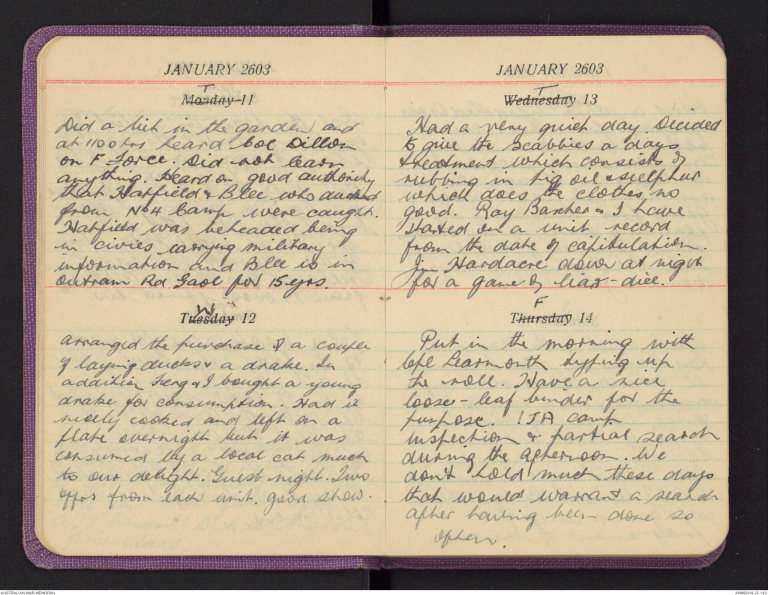 JANUARY 2603
T
Monday 11
Did a bit in the garden and
at 1100 hrs heard Col Dillon
on F Force. Did not learn
anything. Heard on good authority
that Hatfield & Blee who ducked
from No 4 Camp were caught.
Hatfield was beheaded being
in civies carrying military
information and Blee is in
Outram Rd Gaol for 15 yrs.
W
Tuesday 12
Arranged the purchase of a couple
of laying ducks & a drake. In
addition & I bought a young
drake for consumption. Had it
nicely cooked and left on a
plate overnight but it was
consumed by a local cat much
to our delight. Guest night. Two
offrs from each unit. good show.
JANUARY 2603
T
Wednesday 13
Had a very quiet day. Decided
to give the scabbies a days
treatment which consists of
rubbing in pig oil & sulphur
which does the clothes no
good. Ray & I have
started on a unit record
from the date of capitulation.
Jim Hardacre down at night
for a game of liar-dice.
F
Thursday 14
Put in the morning with
Cpl Learmonth typing up
the roll. Have a nice
loose-leaf binder for the
purpose. IJA camp
inspection & partial search
during the afternoon. We
don't hold much these days
that would warrant a search
after having been done so
often.
AUSTRALIAN WAR MEMORIAL